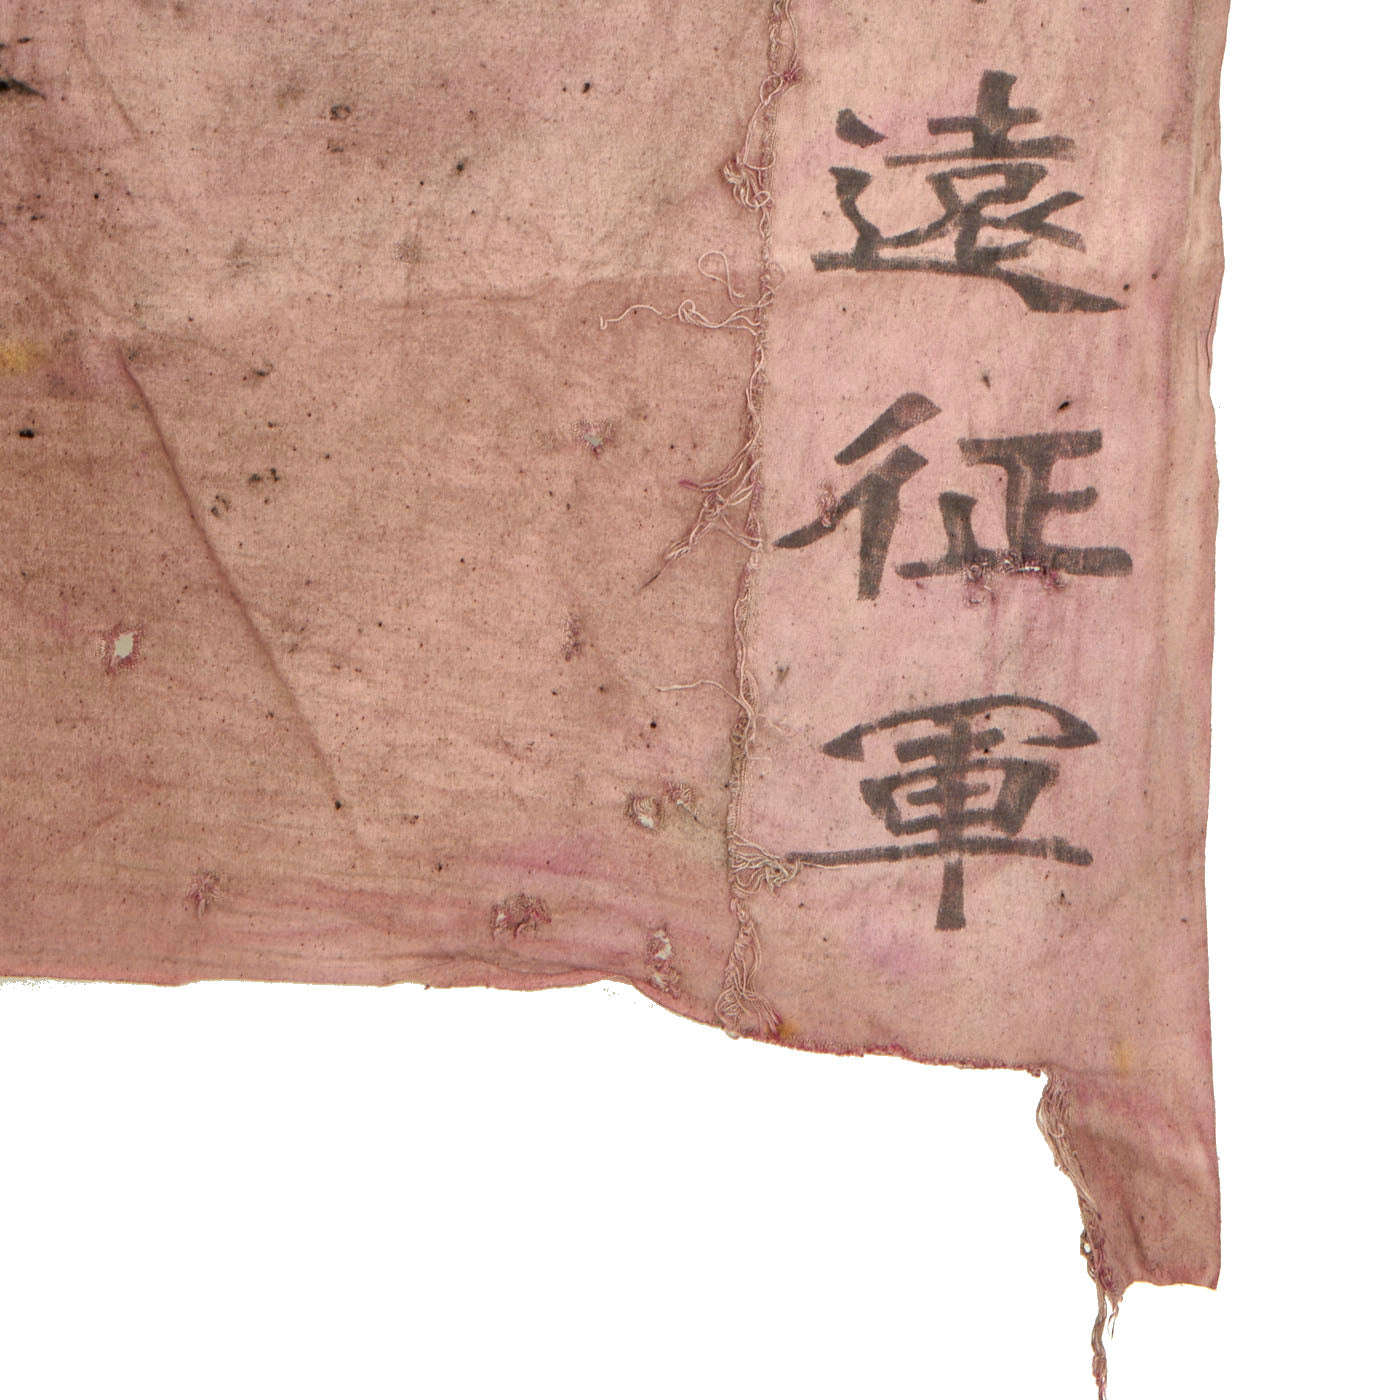 遠征軍